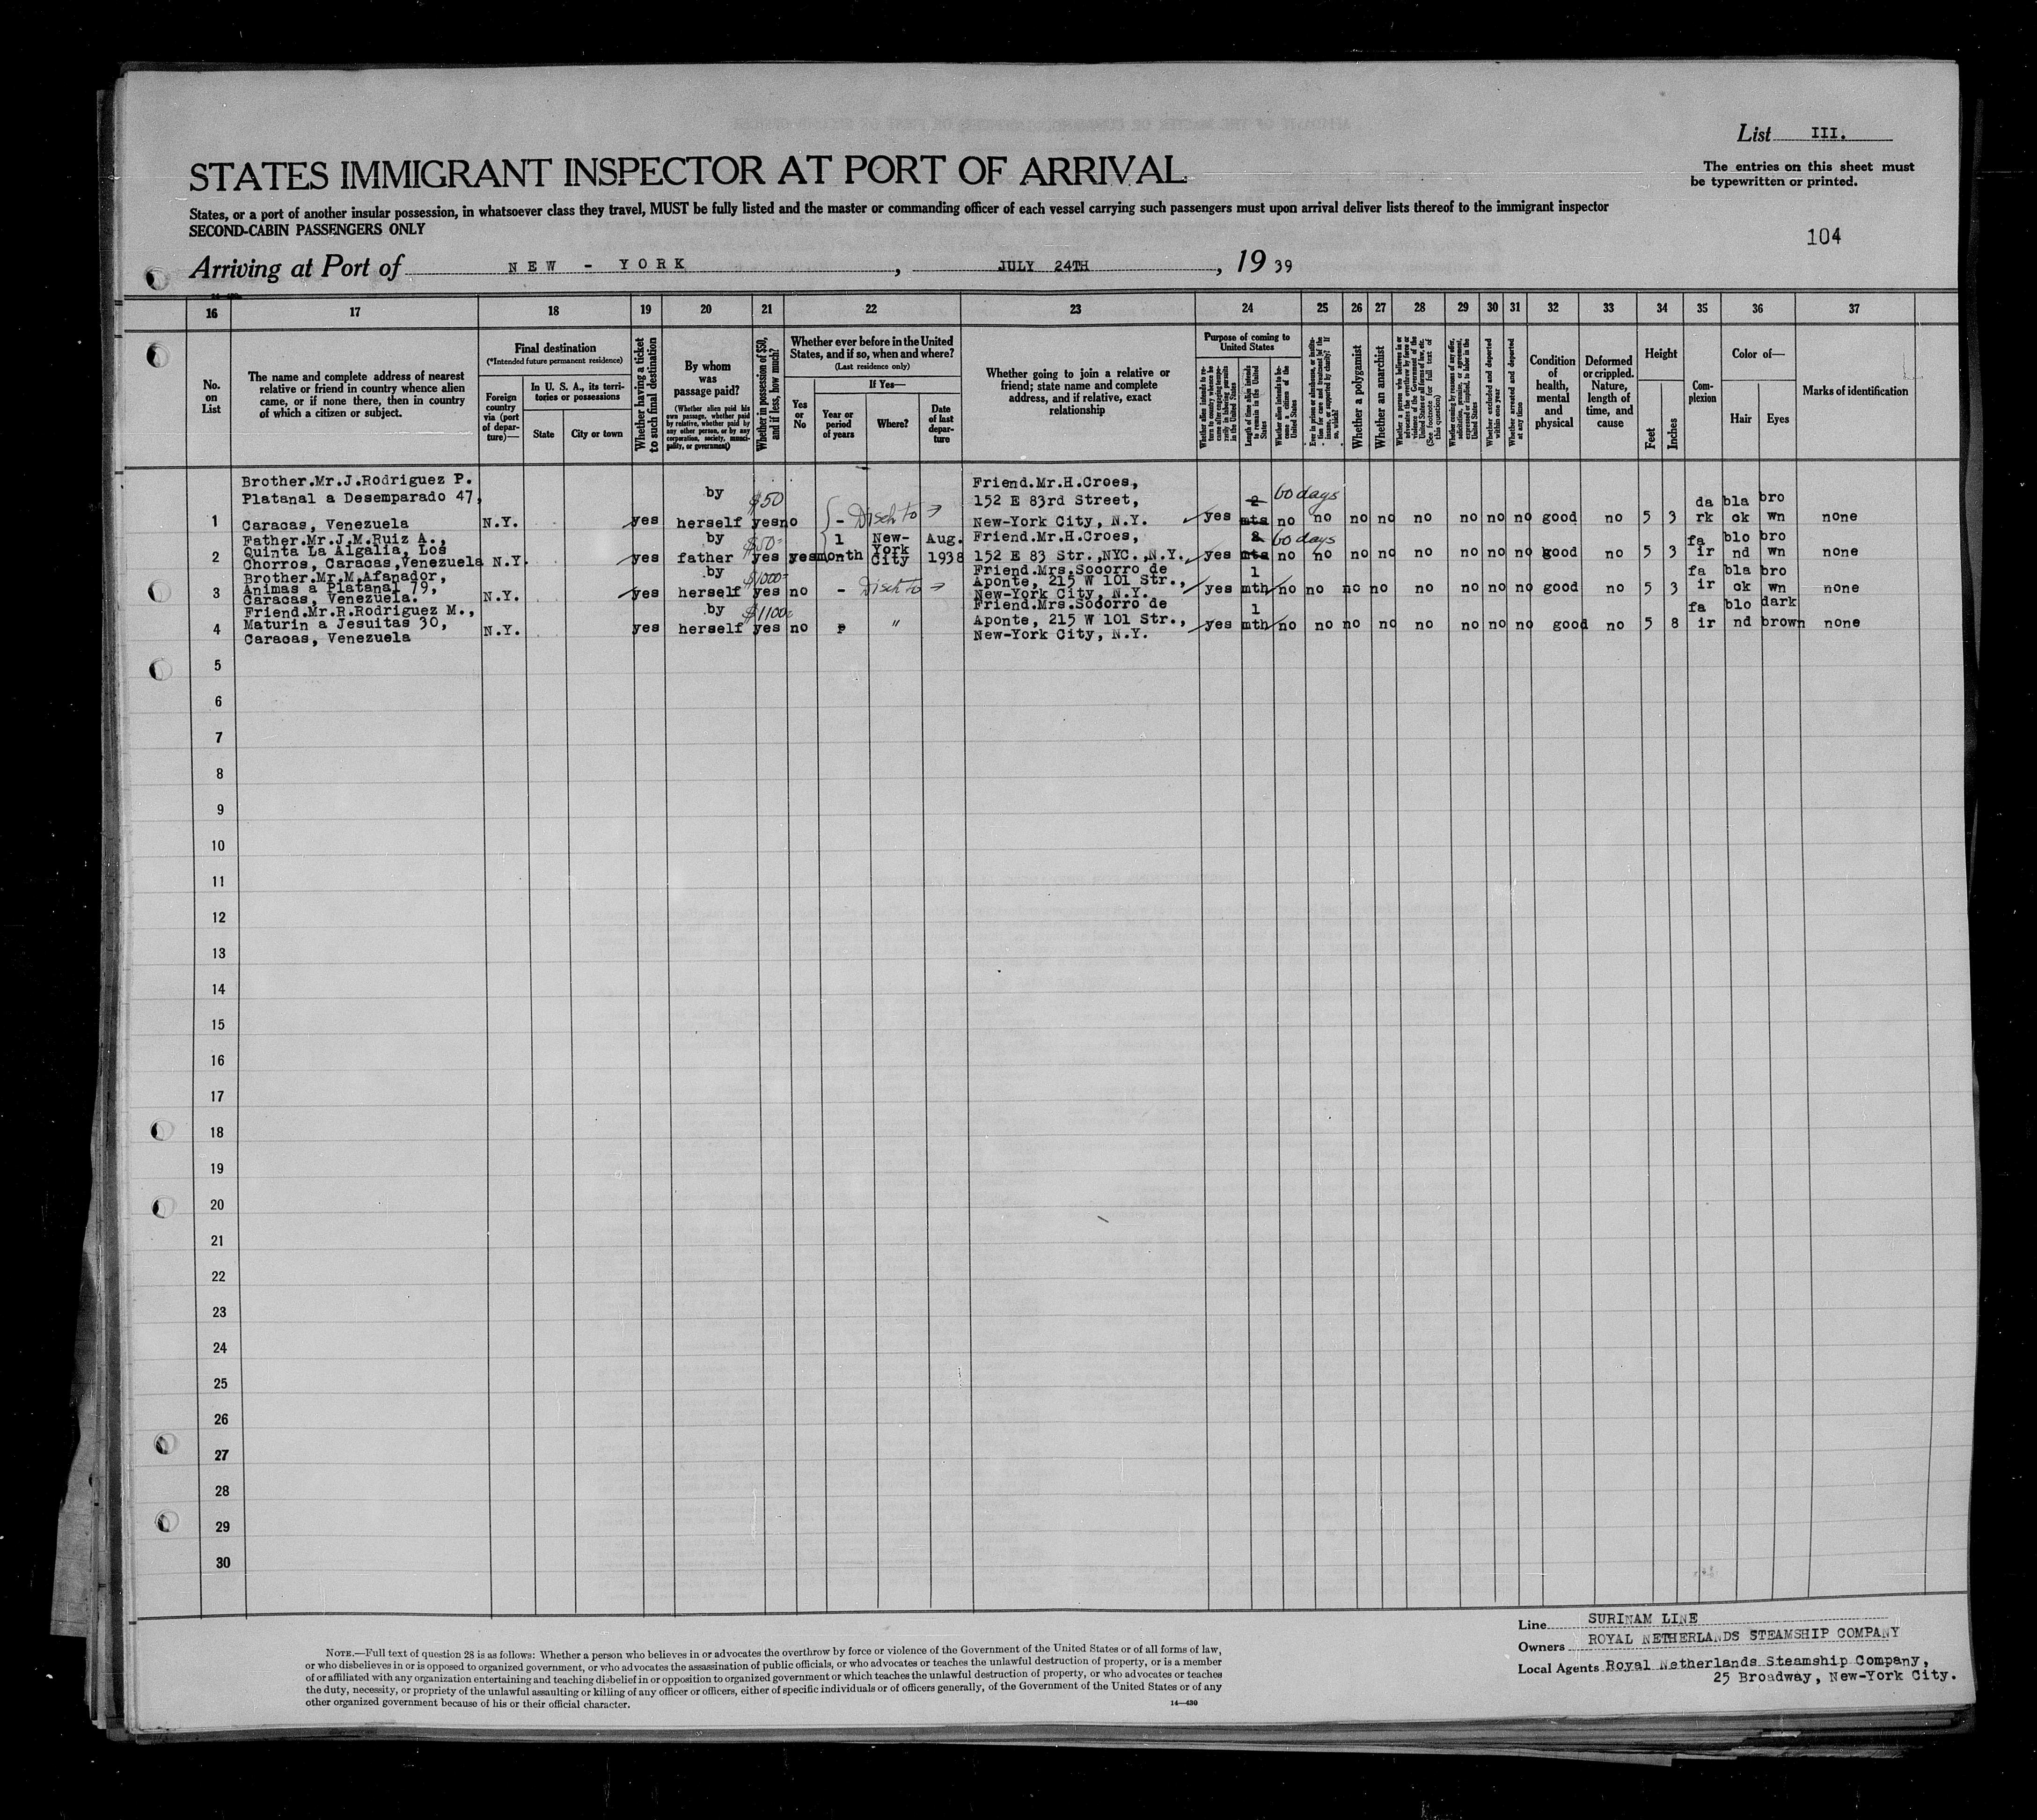 List III.
STATES IMMIGRANT INSPECTOR AT PORT OF ARRIVAL
The entries on this sheet must
be typewritten or printed.
States, or a port of another insular possession, in whatsoever class they travel, MUST be fully listed and the master or commanding officer of each vessel carrying such passengers must upon arrival deliver lists thereof to the immigrant inspector
SECOND-CABIN PASSENGERS ONLY
104
Arriving at Port of NEW - YORK, JULY 24TH, 19 39
16 17 18 19 20 21 22 23 24 25 26 27 28 29 30 31 32 33 34 35 36 37
No. on List
The name and complete address of nearest
relative or friend in country whence alien
came, or if none there, then in country
of which a citizen or subject.
Final destination
(*Intended future permanent residence)
Foreign country via (port of departure)—
In U. S. A., its territories or possessions
State
City or town
Whether having a ticket to such final destination
By whom was passage paid?
(Whether alien paid his own passage, whether paid by relative, whether paid by any other person, or by any corporation, society, municipality, or government)
Whether in possession of $50, and if less, how much?
Whether ever before in the United
States, and if so, when and where?
(Last residence only)
Yes or No
If Yes—
Year or period of years
Where?
Date of last departure
Whether going to join a relative or
friend; state name and complete
address, and if relative, exact
relationship
Purpose of coming to United States
Length of time alien intends to remain in the United States
Whether alien intends to become a citizen of the United States
Whether a polygamist
Whether an anarchist
Whether excluded and deported within one year
Whether arrested and deported at any time
Condition of health, mental and physical
Deformed or crippled. Nature, length of time, and cause
Height
Feet
Inches
Complexion
Color of—
Hair
Eyes
Marks of identification
1 Brother.Mr.J.Rodriguez P.
Platanal a Desemparado 47,
Caracas, Venezuela
N.Y. yes by herself $50 yes no - Disch to
Friend.Mr.H.Croes,
152 E 83rd Street,
New-York City, N.Y.
yes 2 mts 60 days no no no no no no no no good no 5 3 da rk bla ck bro wn none
2 Father.Mr.J.M.Ruiz A.,
Quinta La Algalia, Los
Chorros, Caracas,Venezuela
N.Y. yes by father $50 yes yes 1 month New-York City Aug. 1938
Friend.Mr.H.Croes,
152 E 83 Str.,NYC.,N.Y.
yes mts 60 days no no no no no no no no good no 5 3 fa ir blo nd bro wn none
3 Brother.Mr.M.Afanador,
Animas a Platanal 79,
Caracas, Venezuela.
N.Y. yes by herself $1000 yes no - Disch to
Friend.Mrs.Socorro de
Aponte, 215 W 101 Str.,
New-York City, N.Y.
yes 1 mth no no no no no no no no good no 5 3 fa ir bla ck bro wn none
4 Friend.Mr.R.Rodriguez M.,
Maturin a Jesuitas 30,
Caracas, Venezuela
N.Y. yes by herself $1100 yes no "
Friend.Mrs.Socorro de
Aponte, 215 W 101 Str.,
New-York City, N.Y.
yes 1 mth no no no no no no no no good no 5 8 fa ir blo nd dark brown none
5
6
7
8
9
10
11
12
13
14
15
16
17
18
19
20
21
22
23
24
25
26
27
28
29
30
Line SURINAM LINE
Owners ROYAL NETHERLANDS STEAMSHIP COMPANY
Local Agents Royal Netherlands Steamship Company,
25 Broadway, New-York City.
NOTE.—Full text of question 28 is as follows: Whether a person who believes in or advocates the overthrow by force or violence of the Government of the United States or of all forms of law,
or who disbelieves in or is opposed to organized government, or who advocates the assassination of public officials, or who advocates or teaches the unlawful destruction of property, or is a member
of or affiliated with any organization entertaining and teaching disbelief in or opposition to organized government or which teaches the unlawful destruction of property, or who advocates or teaches
the duty, necessity, or propriety of the unlawful assaulting or killing of any officer or officers, either of specific individuals or of officers generally, of the Government of the United States or of any
other organized government because of his or their official character.
14—430